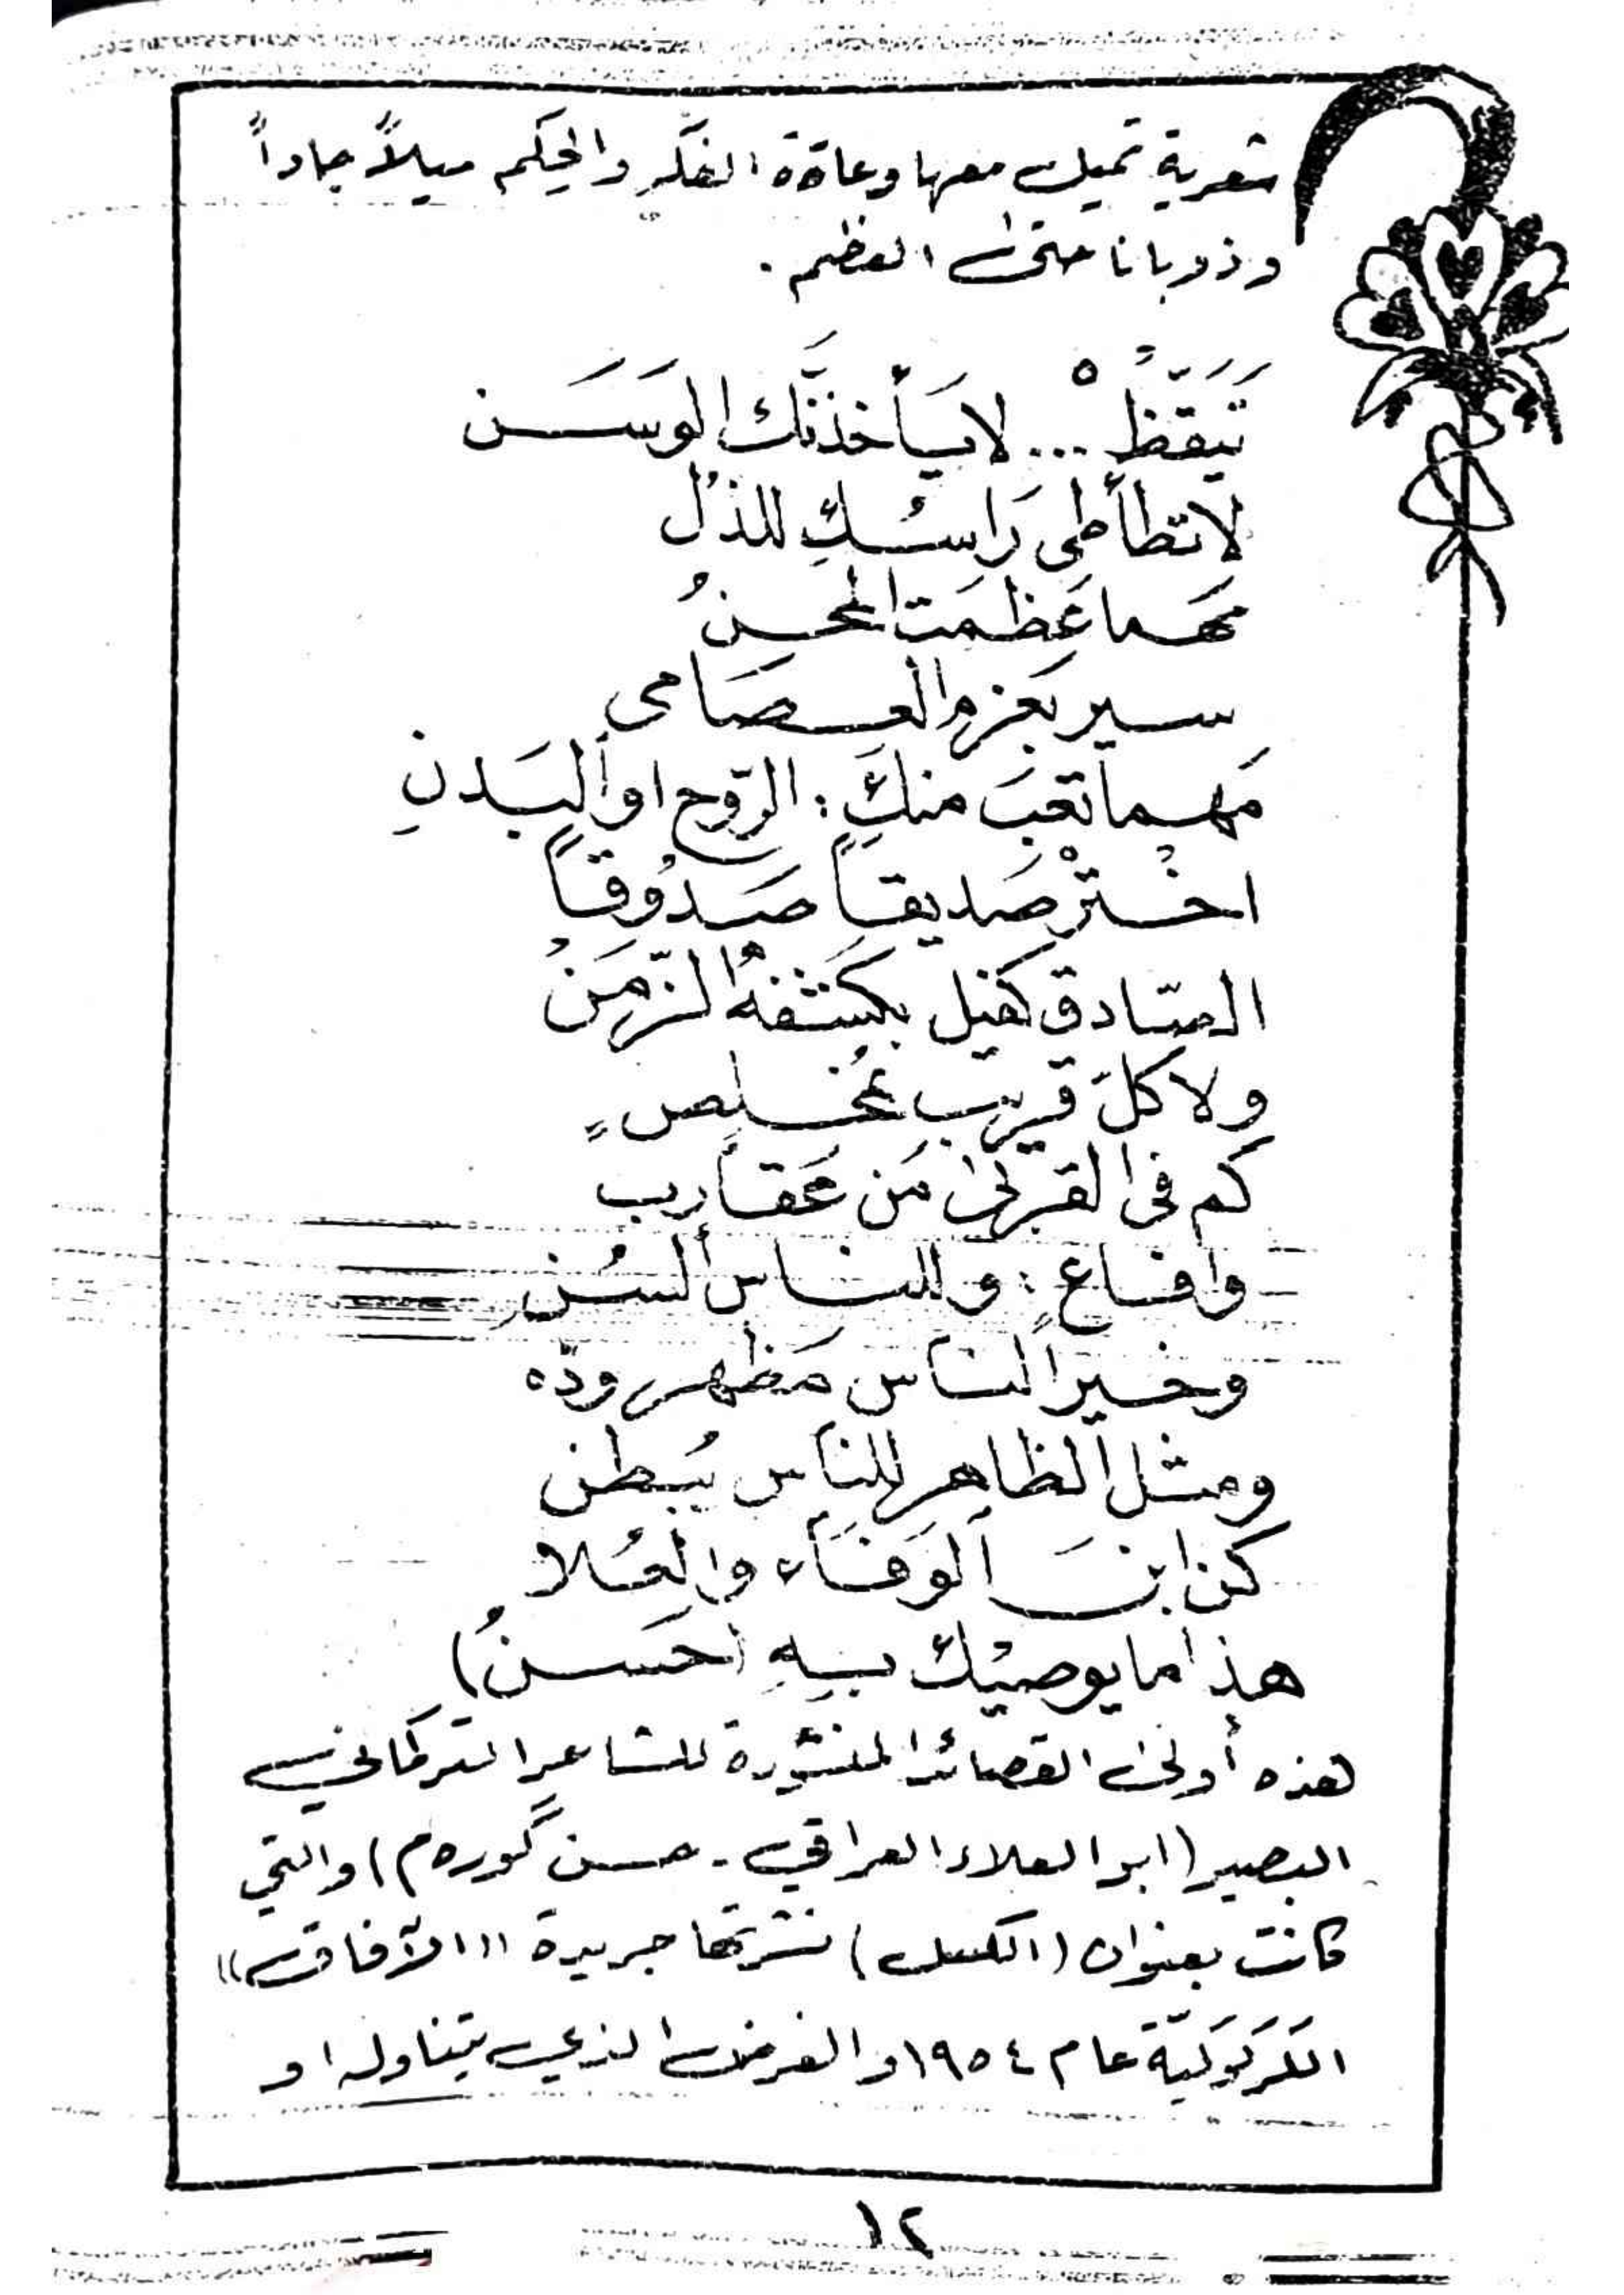 شعرية تميل معها وعاقة الفكر والحِكم ميلاً جاداً
وذوباناً حتى العظم .
تَيَقّظْ ... لا يَأخذنَّك الوَسَـن
لا تطأطى رَاسُـكِ للذل
مهـما عَظمَت المحـنُ
سـير بعَزم العـصَامى
مَهـما تعبَ منكَ : الرّوح او البَـدنِ
اخـترْ صَديقـاً صَـدُوقـاً
الصّادق كفيل بكَشفهُ الزّمَنُ
ولا كلَ قريبٍ مُخـلِصٍ
كم فى القربى مَن عَقـارب
وافـاعٍ : وللنـاس ألسُـن
وخـير الناس مَظهـر ودّه
ومثـل الظاهر للناس يُبـطن
كن ابنَ الوَفـاء والعُـلا
هذا ما يوصيْك بـهِ (حَسـنُ)
هذه أولى القصائد المنشورة للشاعر التركماني
البصير (ابو العلاء العراقي - حسن گوره م) والتي
كانت بعنوان (الكسل) نشرتها جريدة ((الآفاق))
الكَركوكيّة عام ١٩٥٤ والغرض الذي يتناوله او
١٢